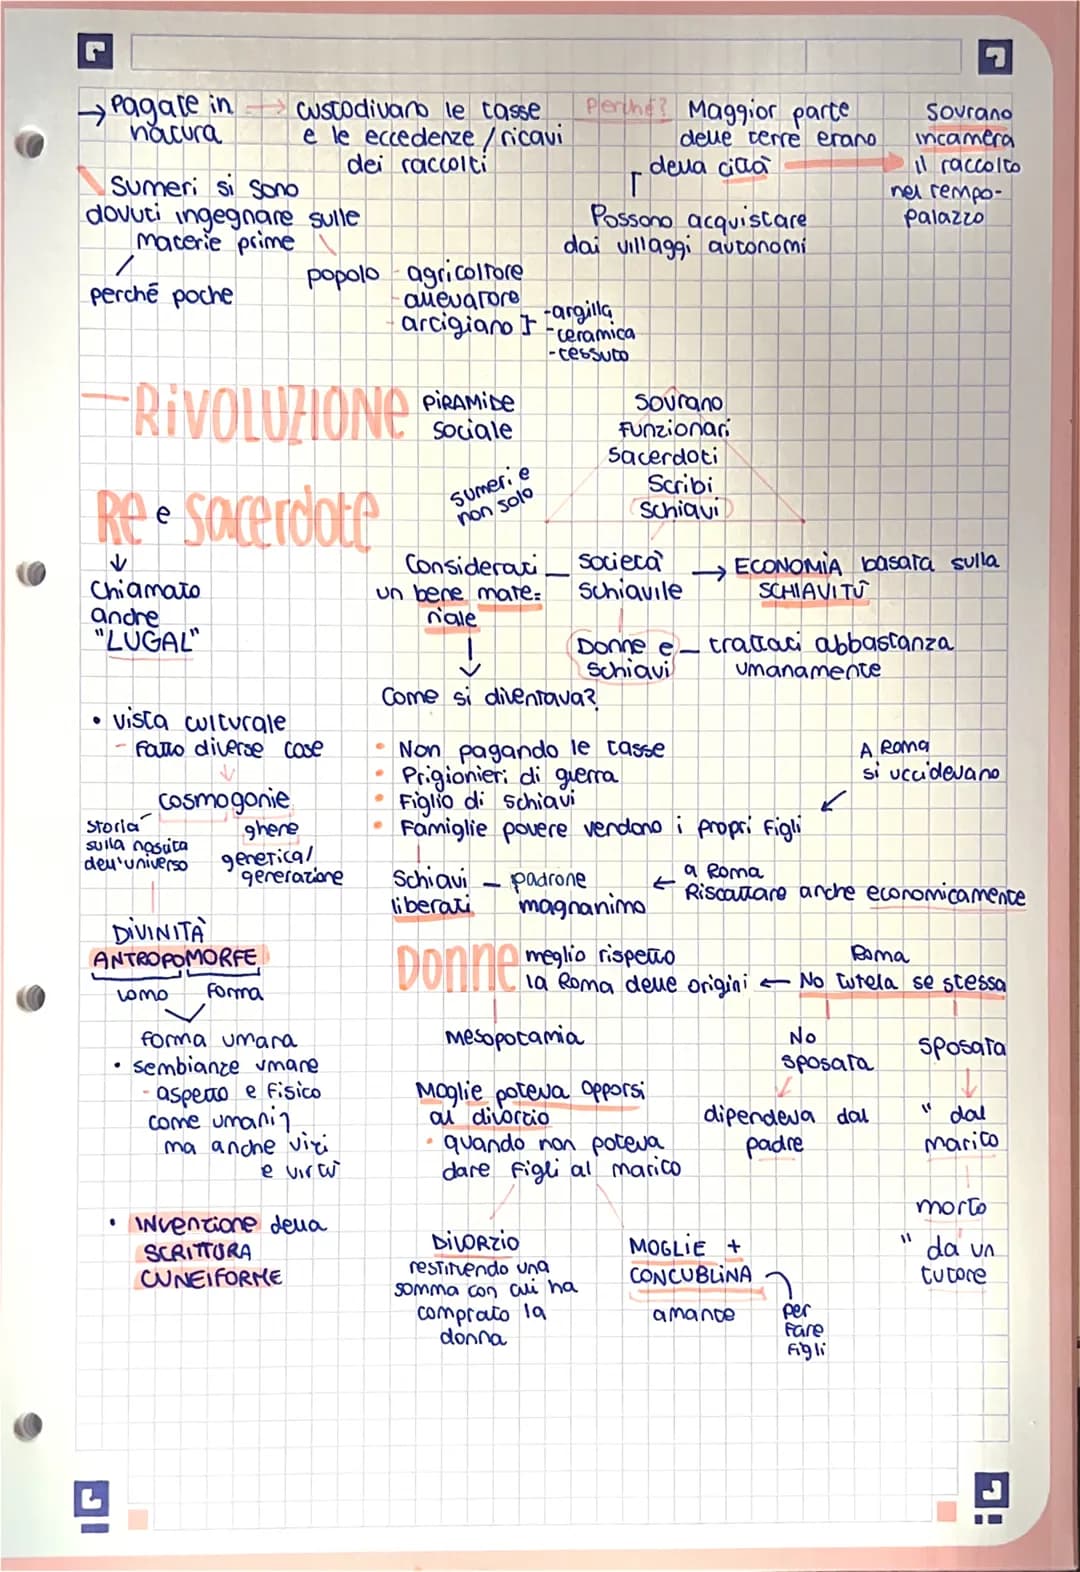 → Pagate in natura → custodivano le tasse e le eccedenze / ricavi dei raccolti
Perché? Maggior parte delle terre erano della città → Sovrano incamera il raccolto nel tempo-palazzo
Possono acquistare dai villaggi autonomi
Sumeri si sono
dovuti ingegnare sulle
materie prime
perché poche
popolo - agricoltore
- allevatore
- artigiano } -argilla
-ceramica
-tessuto
- RIVOLUZIONE
PIRAMIDE
sociale
sumeri e
non solo
Sovrano
Funzionari
Sacerdoti
Scribi
Schiavi
Re e sacerdote
↓
Chiamato
anche
"LUGAL"
Considerati
un bene mate=
riale
Società
Schiavile
→ ECONOMIA basata sulla
SCHIAVITÙ
Donne e
Schiavi
- trattati abbastanza
umanamente
Come si diventava?
• Non pagando le tasse
• Prigionieri di guerra
• Figlio di schiavi
• Famiglie povere vendono i propri figli
A Roma
si uccidevano
Schiavi
liberati
- padrone
magnanimo
← a Roma
Riscattare anche economicamente
• vista culturale
- Fatto diverse cose
↓
cosmogonie
Storia
sulla nascita
dell'universo
ghene
generical/
generazione
DIVINITÀ
ANTROPOMORFE
uomo
forma
forma umana
• sembianze umane
- aspetto e fisico
come umani
ma anche vizi
e virtù
• INVENZIONE della
SCRITTURA
CUNEIFORME
Donne
meglio rispetto
la Roma delle origini ← Roma
No tutela se stessa
Mesopotamia
Moglie poteva opporsi
al divorzio
• quando non poteva
dare figli al marito
DIVORZIO
restituendo una
somma con cui ha
comprato la
donna
MOGLIE +
CONCUBLINA
amante
per
fare
figli
No
sposata
↓
dipendeva dal
padre
sposata
↓
" dal
marito
morto
" da un
tutore